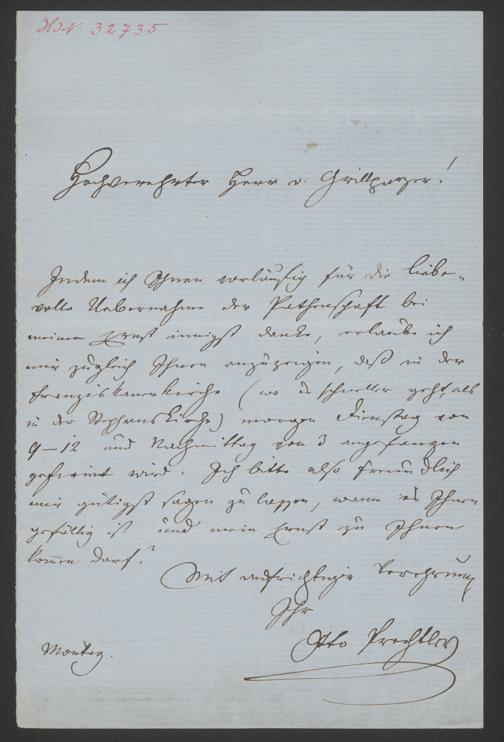 HIN 32735
Hochverehrter Herr v. Grillparzer!
Indem ich Ihnen vorläufig für die liebe-
volle Uebernahme der Pathenschaft bei
meinem Ernst innigst danke, erlaube ich
mir zugleich Ihnen anzuzeigen, daß in der
Franziskanerkirche (wo es schneller geht, als
in der Stephanskirche) morgen Dienstag von
9–12 und Nachmittag von 3 angefangen
gefirmt wird. Ich bitte also freundlich
mir gütigst sagen zu lassen, wann es Ihnen
gefällig ist und mein Ernst zu Ihnen
kom̅en darf?
Mit aufrichtiger Verehrung
Ihr
Otto Prechtler
Montag.